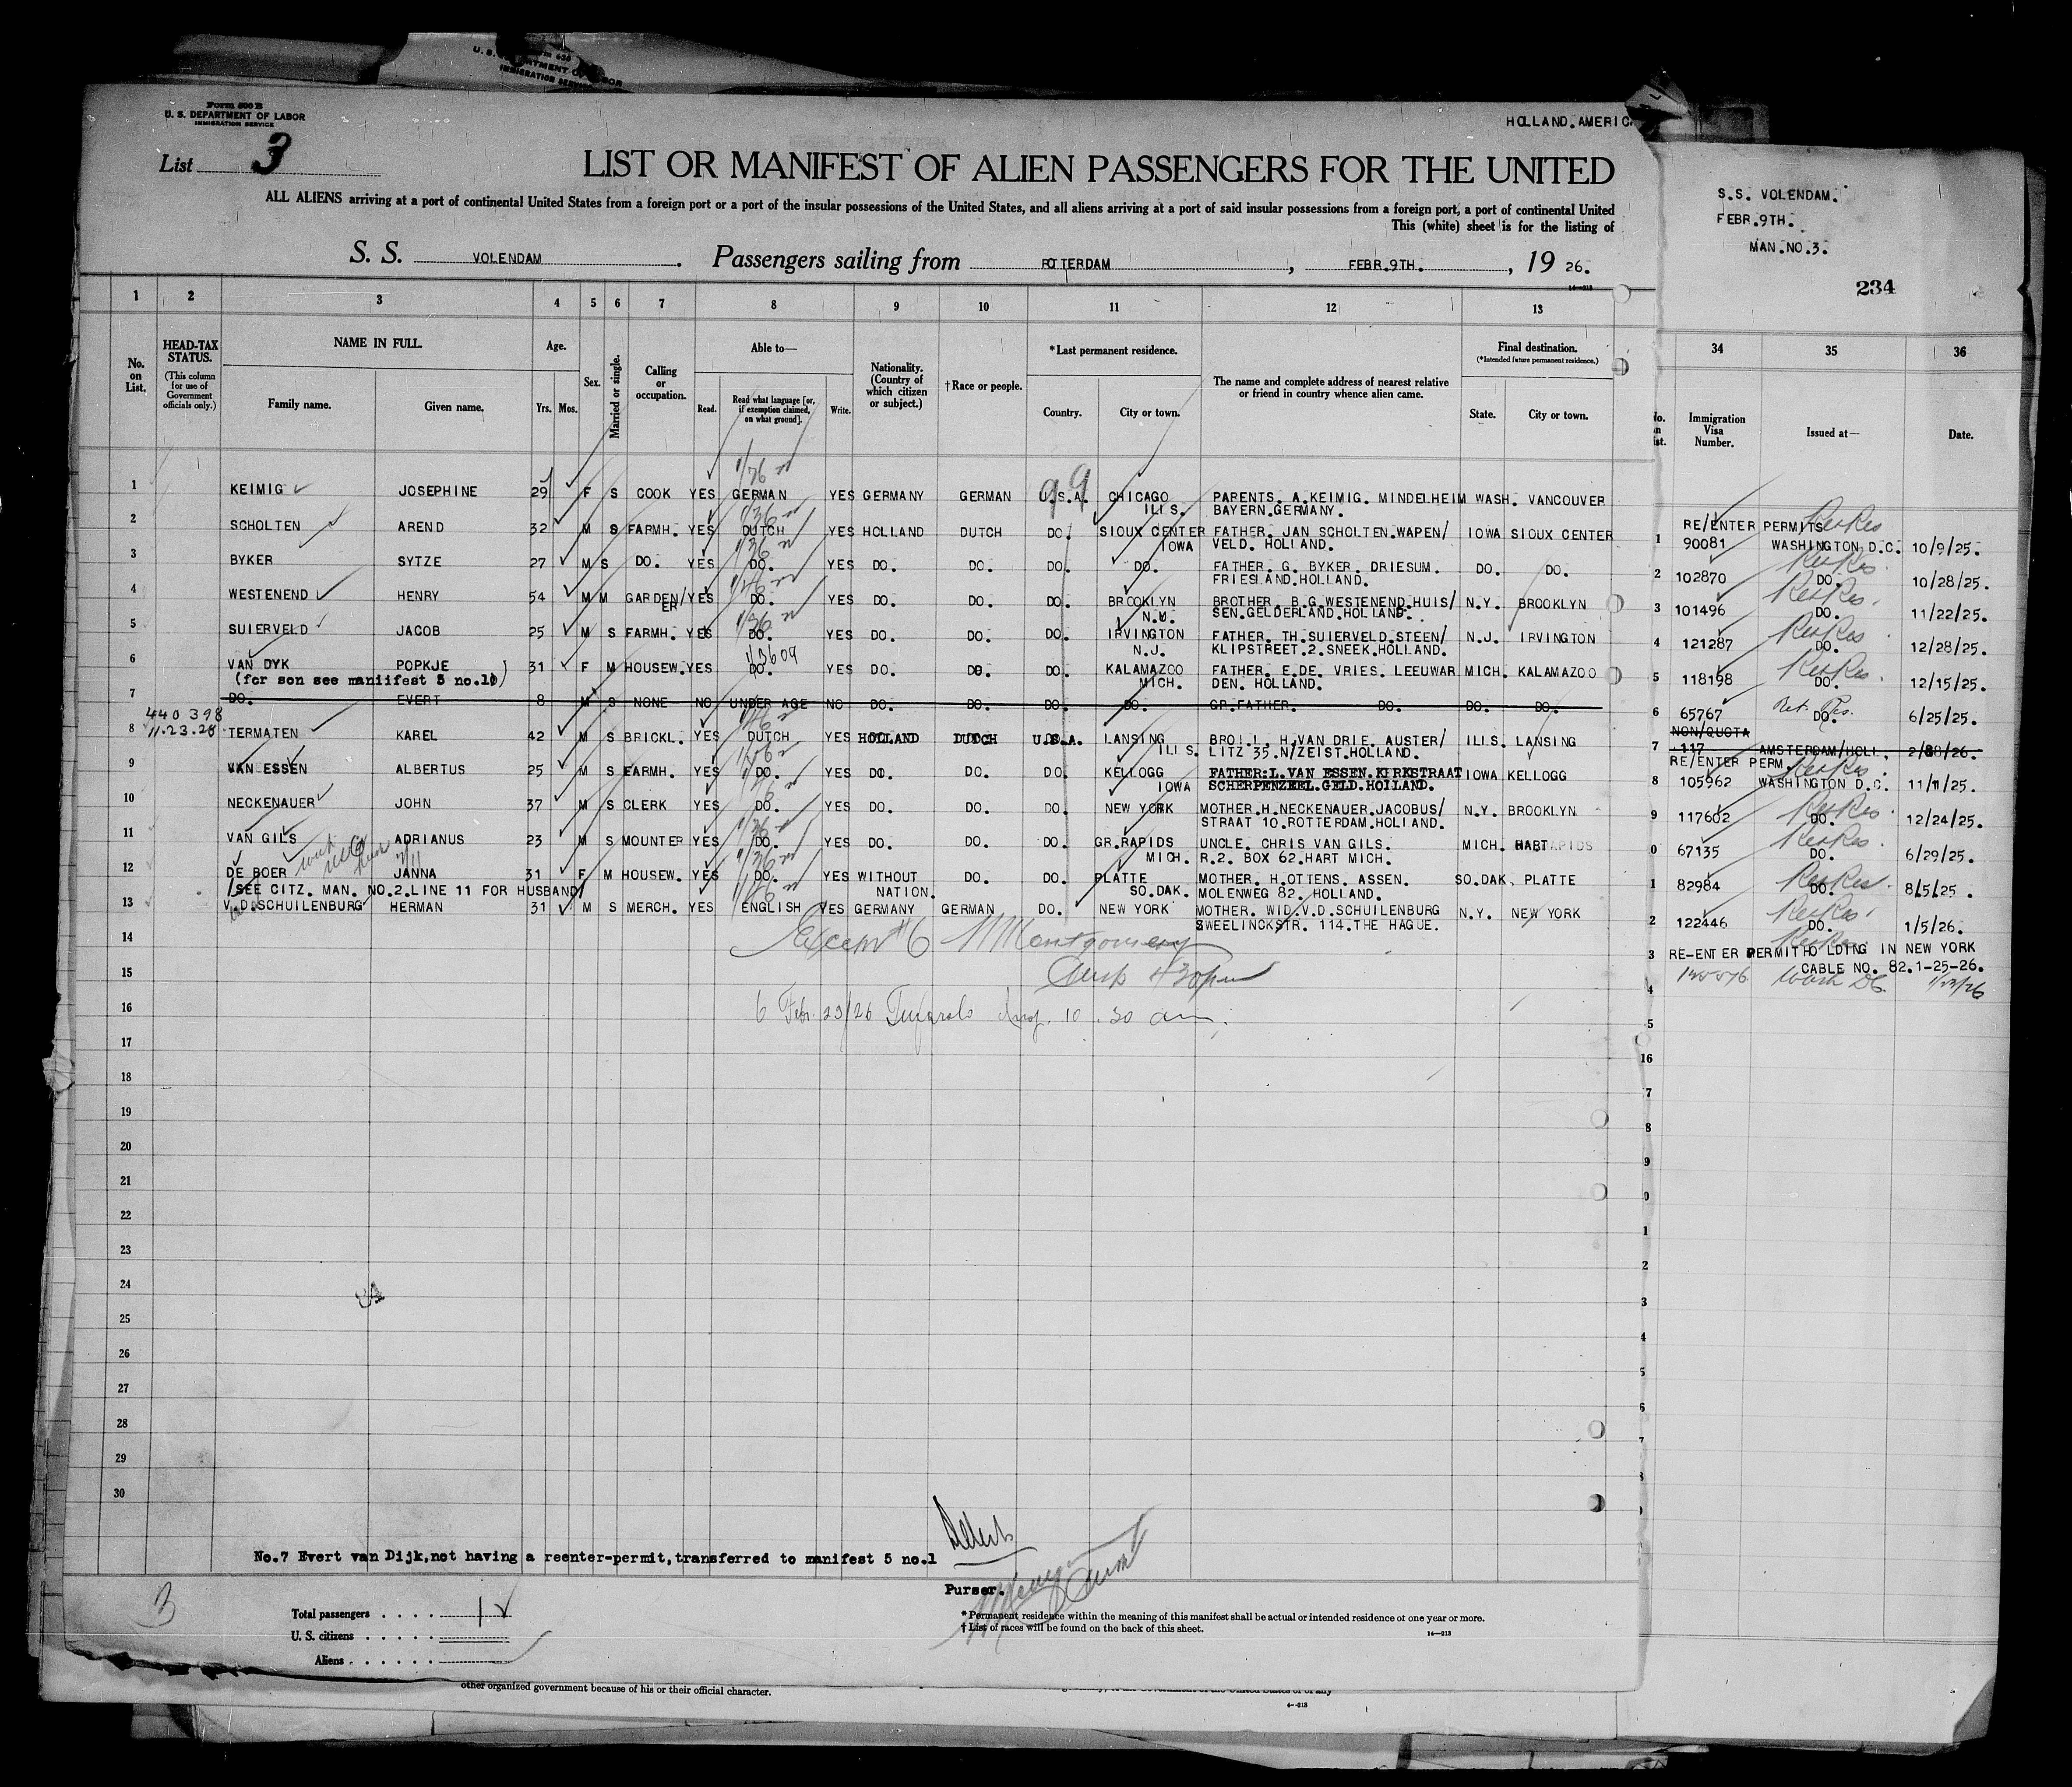 U. S. DEPARTMENT OF LABOR
IMMIGRATION SERVICE
Form 500 B
U. S. DEPARTMENT OF LABOR
IMMIGRATION SERVICE
HOLLAND.AMERIC
List 3
LIST OR MANIFEST OF ALIEN PASSENGERS FOR THE UNITED
ALL ALIENS arriving at a port of continental United States from a foreign port or a port of the insular possessions of the United States, and all aliens arriving at a port of said insular possessions from a foreign port, a port of continental United
This (white) sheet is for the listing of
S. S. VOLENDAM. Passengers sailing from ROTTERDAM, FEBR.9TH., 19 26.
S.S. VOLENDAM.
FEBR.9TH.
MAN.NO.3.
234
1 2 3 4 5 6 7 8 9 10 11 12 13
No. on List.
HEAD-TAX STATUS.
(This column for use of Government officials only.)
NAME IN FULL.
Family name. Given name.
Age.
Yrs. Mos.
Sex.
Married or single.
Calling or occupation.
Able to—
Read. Read what language [or, if exemption claimed, on what ground]. Write.
Nationality. (Country of which citizen or subject.)
†Race or people.
*Last permanent residence.
Country. City or town.
The name and complete address of nearest relative or friend in country whence alien came.
Final destination.
(*Intended future permanent residence.)
State. City or town.
1 KEIMIG JOSEPHINE 29 F S COOK YES GERMAN YES GERMANY GERMAN U.S.A. CHICAGO ILLS. PARENTS. A.KEIMIG. MINDELHEIM WASH. VANCOUVER
BAYERN.GERMANY.
2 SCHOLTEN AREND 32 M S FARMH. YES DUTCH YES HOLLAND DUTCH DO. SIOUX CENTER IOWA FATHER. JAN SCHOLTEN.WAPEN/ IOWA SIOUX CENTER
VELD. HOLLAND.
3 BYKER SYTZE 27 M S DO. YES DO. YES DO. DO. DO. DO. FATHER. G. BYKER. DRIESUM. DO. DO.
FRIESLAND.HOLLAND.
4 WESTENEND HENRY 54 M M GARDEN/ER YES DO. YES DO. DO. DO. BROOKLYN N.Y. BROTHER. B.G.WESTENEND.HUIS/ N.Y. BROOKLYN
SEN.GELDERLAND.HOLLAND.
5 SUIERVELD JACOB 25 M S FARMH. YES DO. YES DO. DO. DO. IRVINGTON N.J. FATHER. TH.SUIERVELD.STEEN/ N.J. IRVINGTON
KLIPSTREET.2.SNEEK.HOLLAND.
6 VAN DYK POPKJE 31 F M HOUSEW. YES DO. YES DO. DO. DO. KALAMAZOO MICH. FATHER. E.DE. VRIES. LEEUWAR MICH. KALAMAZOO
(for son see maniifest 5 no.1) DEN. HOLLAND.
7 DO. EVERT 8 M S NONE NO UNDER AGE NO DO. DO. DO. DO. GR.FATHER. DO. DO. DO.
440398
11.23.28
8 TERMATEN KAREL 42 M S BRICKL. YES DUTCH YES HOLLAND DUTCH U.S.A. LANSING ILLS. BRO.I.L. H.VAN DRIE. AUSTER/ ILLS. LANSING
LITZ 35.N/ZEIST.HOLLAND.
9 VAN ESSEN ALBERTUS 25 M S FARMH. YES DO. YES DO. DO. DO. KELLOGG IOWA FATHER:L.VAN ESSEN.KIRKSTRAAT IOWA KELLOGG
SCHERPENZEEL.GELD.HOLLAND.
10 NECKENAUER JOHN 37 M S CLERK YES DO. YES DO. DO. DO. NEW YORK MOTHER.H.NECKENAUER.JACOBUS/ N.Y. BROOKLYN
STRAAT 10.ROTTERDAM.HOLLAND.
11 VAN GILS ADRIANUS 23 M S MOUNTER YES DO. YES DO. DO. DO. GR.RAPIDS MICH. UNCLE. CHRIS VAN GILS. MICH. HART
R.2. BOX 62.HART MICH.
12 DE BOER JANNA 31 F M HOUSEW. YES DO. YES WITHOUT NATION. DO. DO. PLATTE SO.DAK. MOTHER. H.OTTENS. ASSEN. SO.DAK. PLATTE
/SEE CITZ. MAN. NO.2.LINE 11 FOR HUSBAND/ MOLENWEG 82. HOLLAND.
13 V.D.SCHUILENBURG HERMAN 31 M S MERCH. YES ENGLISH YES GERMANY GERMAN DO. NEW YORK MOTHER. WID.V.D.SCHUILENBURG N.Y. NEW YORK
SWEELINCKSTR. 114.THE HAGUE.
14 Except #6 Montgomery
15 Insp 430pm
16 6 Feb. 23/26 Insp. 10.30 am.
17
18
19
20
21
22
23
24
25
26
27
28
29
30
34 35 36
Immigration Visa Number. Issued at— Date.
RE/ENTER PERMITS
1 90081 WASHINGTON D.C. 10/9/25.
2 102870 DO. 10/28/25.
3 101496 DO. 11/22/25.
4 121287 DO. 12/28/25.
5 118198 DO. 12/15/25.
6 65767 DO. 6/25/25.
NON/QUOTA
7 117 AMSTERDAM/HOLL.
RE/ENTER PERM.
8 105962 WASHINGTON D.C. 11/11/25.
9 117602 DO. 12/24/25.
0 67135 DO. 6/29/25.
1 82984 DO. 8/5/25.
2 122446 DO. 1/5/26.
3 RE-ENTER PERMIT HOLDING IN NEW YORK
CABLE NO. 82.1-25-26.
Wash DC.
No.7 Evert van Dijk,not having a reenter-permit,transferred to manifest 5 no.1
Purser.
3
Total passengers
U. S. citizens
Aliens
*Permanent residence within the meaning of this manifest shall be actual or intended residence of one year or more.
†List of races will be found on the back of this sheet.
14—213
other organized government because of his or their official character.